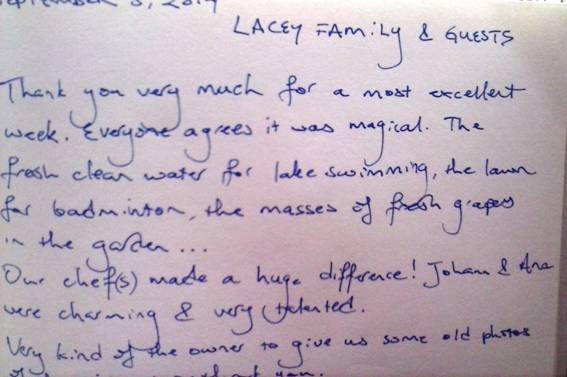 September 5, 2014
LACEY FAMILY & GUESTS
Thank you very much for a most excellent
week. Everyone agrees it was magical. The
fresh clean water for lake swimming, the lawn
for badminton, the masses of fresh grapes
in the garden...
Our chef(s) made a huge difference! Johann & Ana
were charming & very talented.
Very kind of the owner to give us some old photos